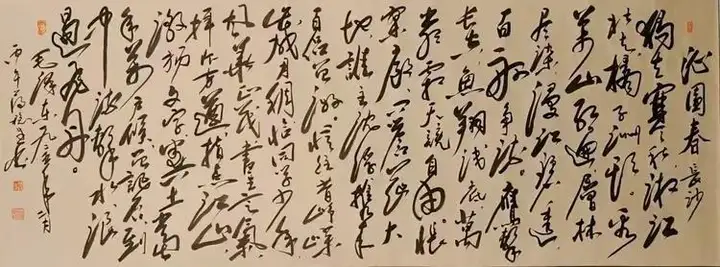 沁园春 长沙
独立寒秋湘江
北去橘子洲头看
万山红遍层林
尽染漫江碧透
百舸争流鹰击
长空鱼翔浅底万
类霜天竞自由怅
寥廓问苍茫大
地谁主沉浮携来
百侣曾游忆往昔峥嵘
岁月稠恰同学少年
风华正茂书生意气
挥斥方遒指点江山
激扬文字粪土当
年万户侯曾记否到
中流击水浪
遏飞舟。
毛泽东一九二五年
丙午